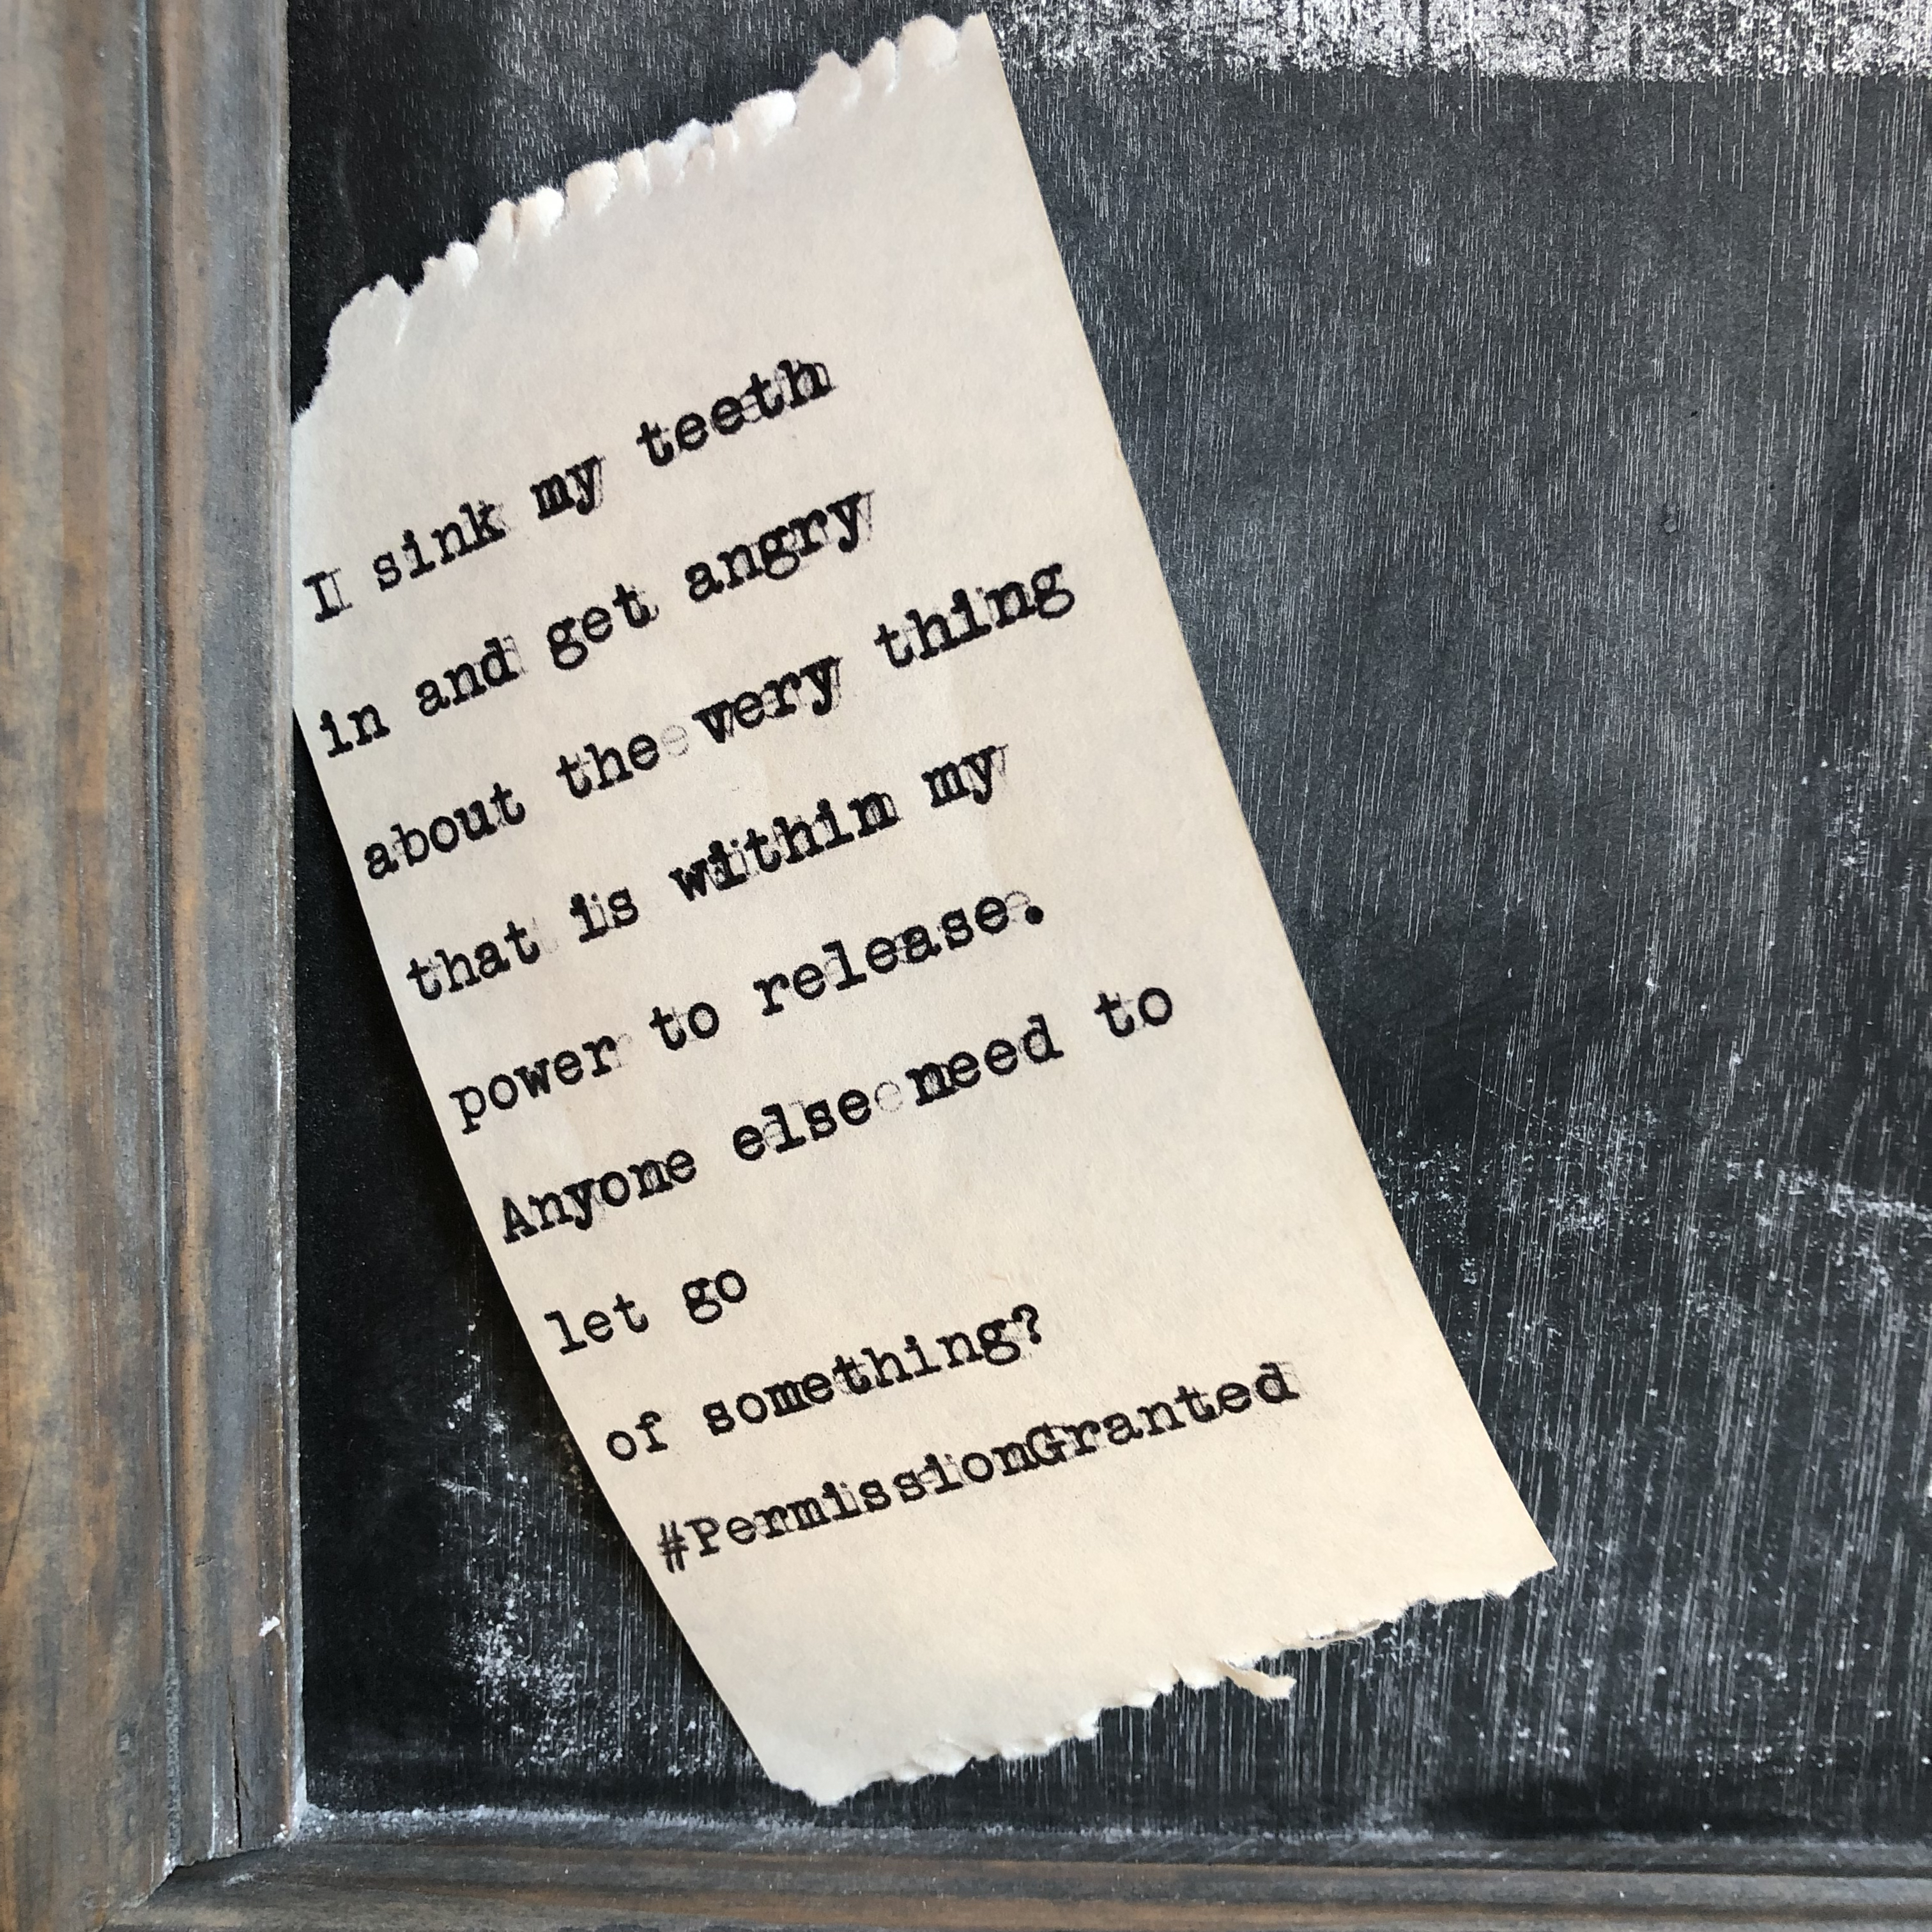 I sink my teeth
in and get angry
about the very thing
that is within my
power to release.
Anyone else need to
let go
of something?
#PermissionGranted